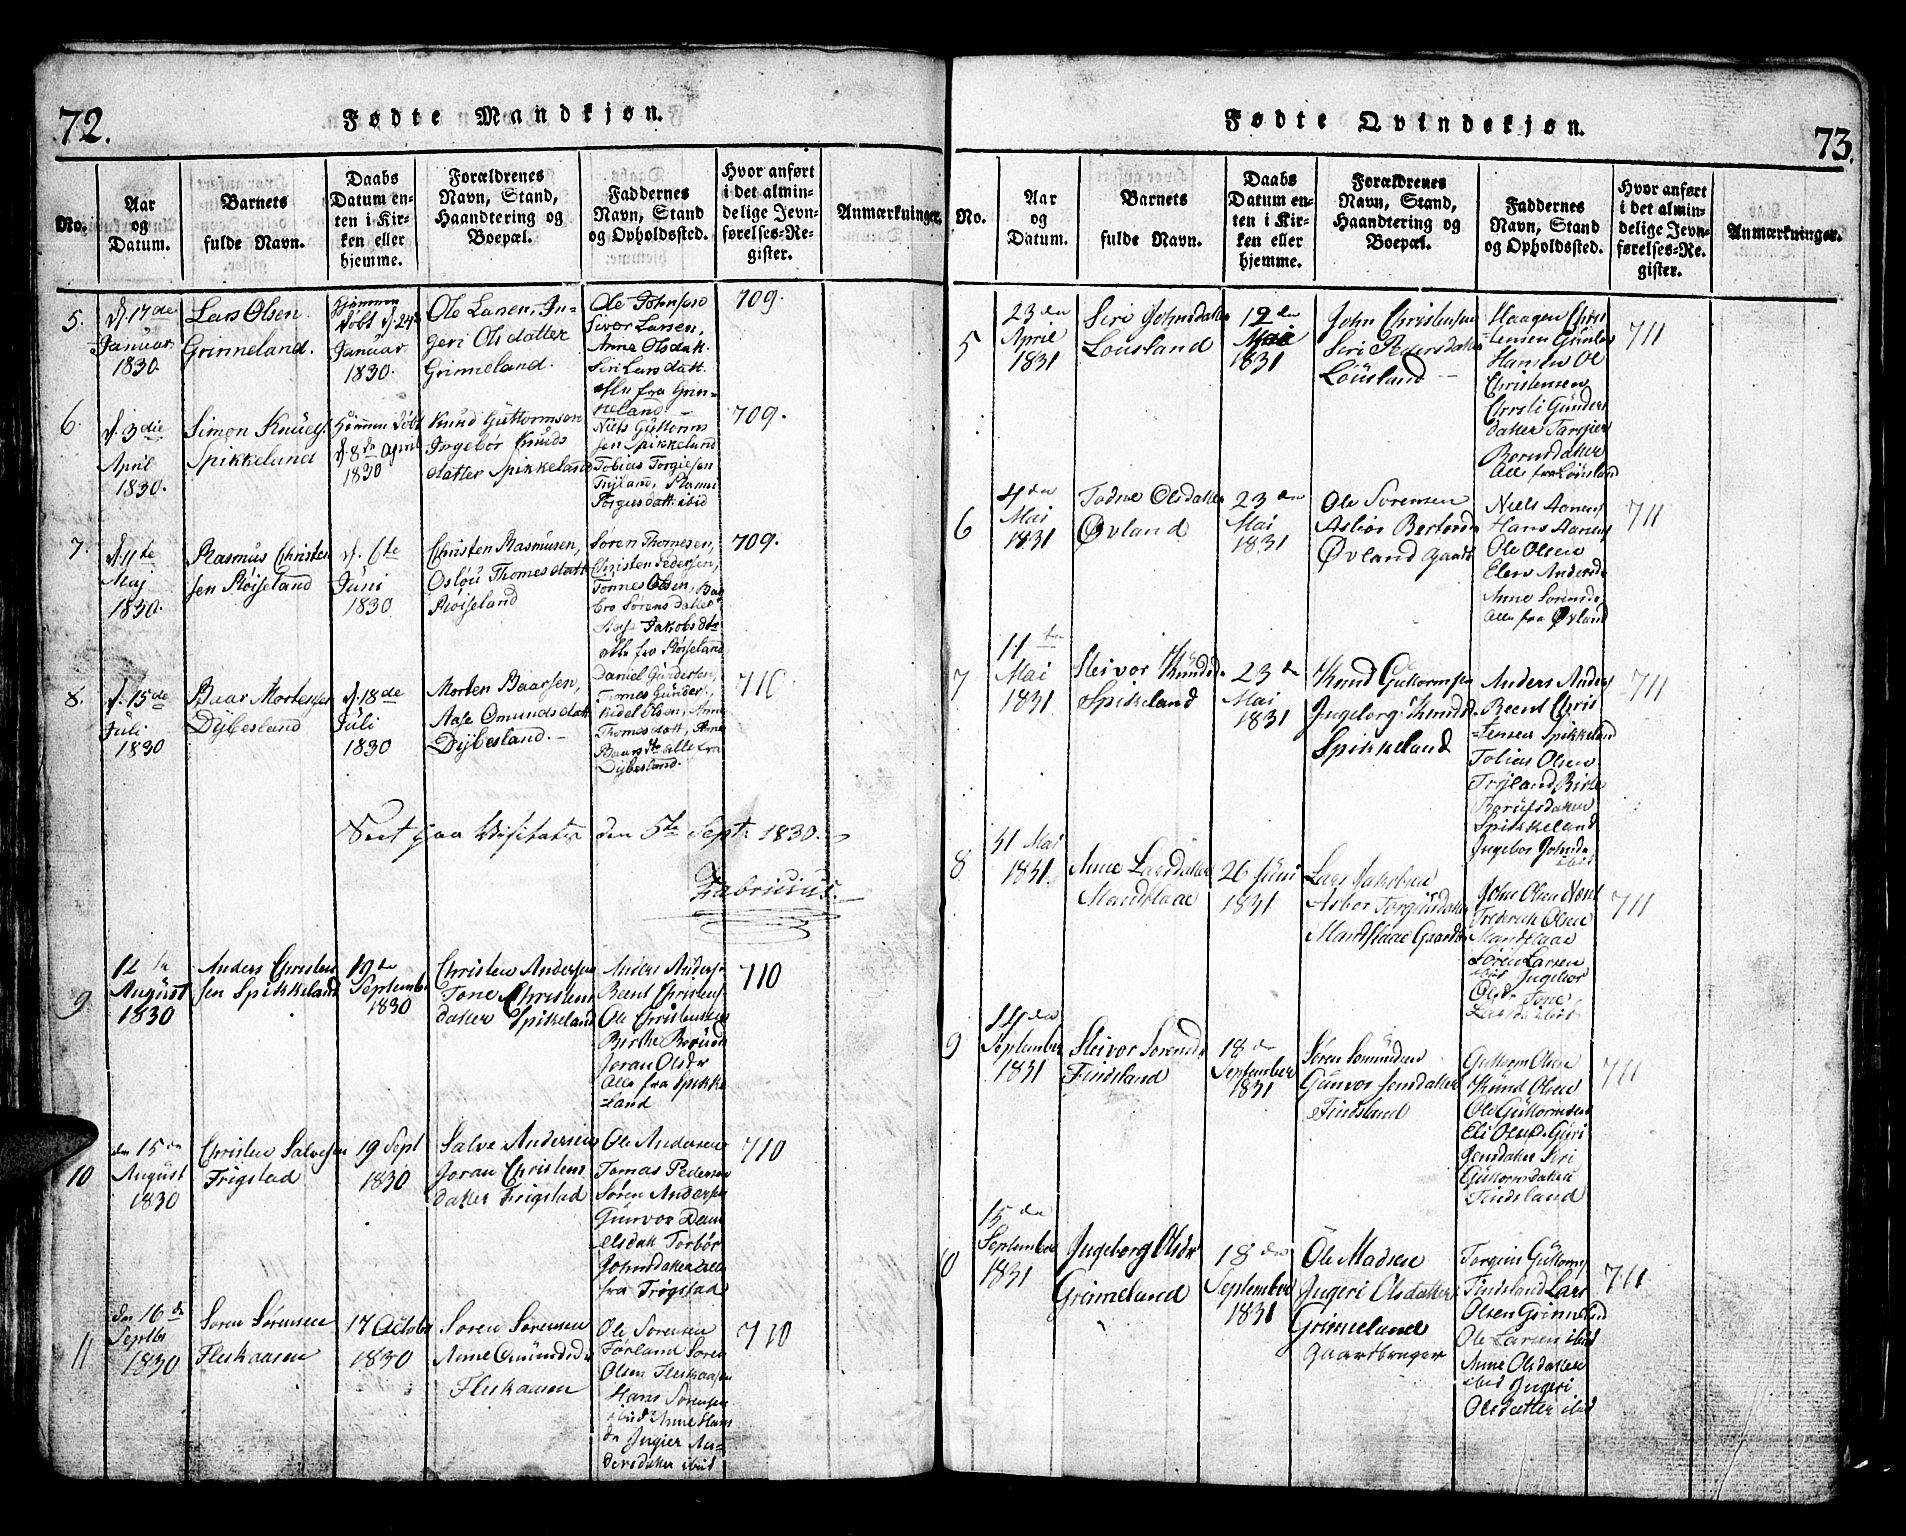 72.
Fødte Mandkjøn.
No.
Aar
og
Datum.
Barnets
fulde Navn.
Daabs
Datum en-
ten i Kir-
ken eller
hjemme.
Forældrenes
Navn, Stand,
Haandtering og
Boepæl.
Faddernes
Navn, Stand
og Opholdssted.
Hvor anført
i det almin-
delige Jevn-
førelses-Re-
gister.
Anmærkninger.
5.
d. 17de
Januar
1830.
Lars Olsen
Grimeland.
hjemme
døbt d. 24de
Januar
1830.
Ole Larsen, In-
geri Olsdatter
Grimeland.
Ole Johnsen
Sivor Larsen,
Anne Olsdatt.
Siri Larsdatt.
alle fra Grim-
meland.
709.
6.
d. 3die
April
1830.
Simon Knuds.
Spikkeland
hjemme døbt
d. 8de April
1830
Knud Guttormsen
Ingebor Knuds
datter Spikkeland
Niels Guttorms
sen Spikkeland
Tobias Torgiesen
Tryland,
Torgiersdatt. ibid
709.
7.
d. 11te
Maj
1830.
Rasmus Christen
sen Røiseland
d. 6te
Juni
1830
Christen Rasmusen,
Oslou Thomesdatt
Røiseland
Søren Thomesen,
Christen Pedersen,
Tønnes Olsen, Bar
bro Sørensdatter
Jakobsdtr
alle fra Røiseland
709.
8.
d. 15de
Juli
1830
Baar Mortensen
Dybesland
d. 18de
Juli
1830
Morten Baarsen,
Aase Omundsdatt
Dybesland.
Daniel Gundersen,
Tomes Gunders.,
Kidel Olsen, Anne
Thomesdatt, Anne
Baarsdtr alle fra
Dybesland.
710
Seet paa Visitatz den 5te Septr 1830.
Fabricius.
9
12te
August
1830
Anders Christen
sen Spikkeland
19de
Septembr
1830
Christen Andersen
Tone Christens
datter Spikeland
Anders Anders
Beent Christens
Ole Christensen
Birthe
Joran Olsdr
Alle fra Spikke
land
710
10
den 15de
August
1830
Christen Salvesen
Frigstad
19 Sept
1830
Salve Andersen
Joran Christens
datter Frigstad
Ole Andersen
Tomas Pedersen
Søren Andersen
Gunvor Dani
elsdat Torbør
Johnsdatter alle
fra Frøgstad
710
11
den 16de
Septbr
1830
Soren Sørensen
Fleskaasen
17 Octobr
1830
Soren Sørensen
Anne Omundsdr
Fleskaasen
Ole Sorensen
Førland Søren
Olsen Fleskaasen
Hans Sørensen
ibid Anne
Ingier An-
dersdatter ibid
710
73.
Fødte Qvindekjøn.
No.
Aar
og
Datum.
Barnets
fulde Navn.
Daabs
Datum en-
ten i Kir-
ken eller
hjemme.
Forældrenes
Navn, Stand,
Haandtering og
Boepæl.
Faddernes
Navn, Stand
og Opholdssted.
Hvor anført
i det almin-
delige Jevn-
førelses-Re-
gister.
Anmærkninger.
5
23de
April
1831
Siri Johnsdatter
Lousland
12te
Mai
1831
John Christensen
Siri Pedersdatter
Lousland
Haagen Chris
tensen Gunlov
Hansen Ol
Christensen
Christi Gunders
datter
datter
Alle fra Lousland
711
6
4de
Mai
1831
Todne Olsdatter
Øvland
23de
Mai
1831
Ole Sørensen
Asbor
Øvland Gaard
Niels Aanens
Hans Aanens
Ole Olsen
Elen Andersdr
Anne Sorensdr
Alle fra Øvland
711
7
11te
Mai
1831
Sleivor Knudsd.
Spikeland
23de
Mai
1831
Knud Guttormsen
Ingeborg Knudsd
Spikkeland
Anders Anders
Beent Chris
tensen Spikkeland
Tobias Olsen
Tryland Birte
datter
Spikkeland
Ingebor Johnsdr
ibid
711
8
31 Mai
1831
Anne Larsdatter
Mandflaae
26 Juni
1831
Lars Jakobsen
Asbor Torgiusdatter
Mandflaae Gaardbr
John Olsen
Frederik Olsen
Mandflaae
Søren Larsen
ibid Ingebor
Olsdr Tone
Larsdr ibid
711
9
14de
September
1831
Sleivor Sorensdr
Findsland
18de
September
1831
Søren
Gunvor Jensdatter
Findsland
Guttorm Olsen
Knud Olsen
Ole Guttormsen
Eli Olsdr Guri
Jensdatter Siri
Guttormsdatter
Findsland
711
10
15de
September
1831
Ingeborg Olsdr
Grimeland
18de
September
1831
Ole Madsen
Ingeri Olsdatter
Grimeland
Gaardbruger
Torgius Guttorms
Findsland Lars
Olsen Grimeland
Ole Larsen ibid
Anne Olsdatter
ibid Ingeri
Olsdatter ibid
711